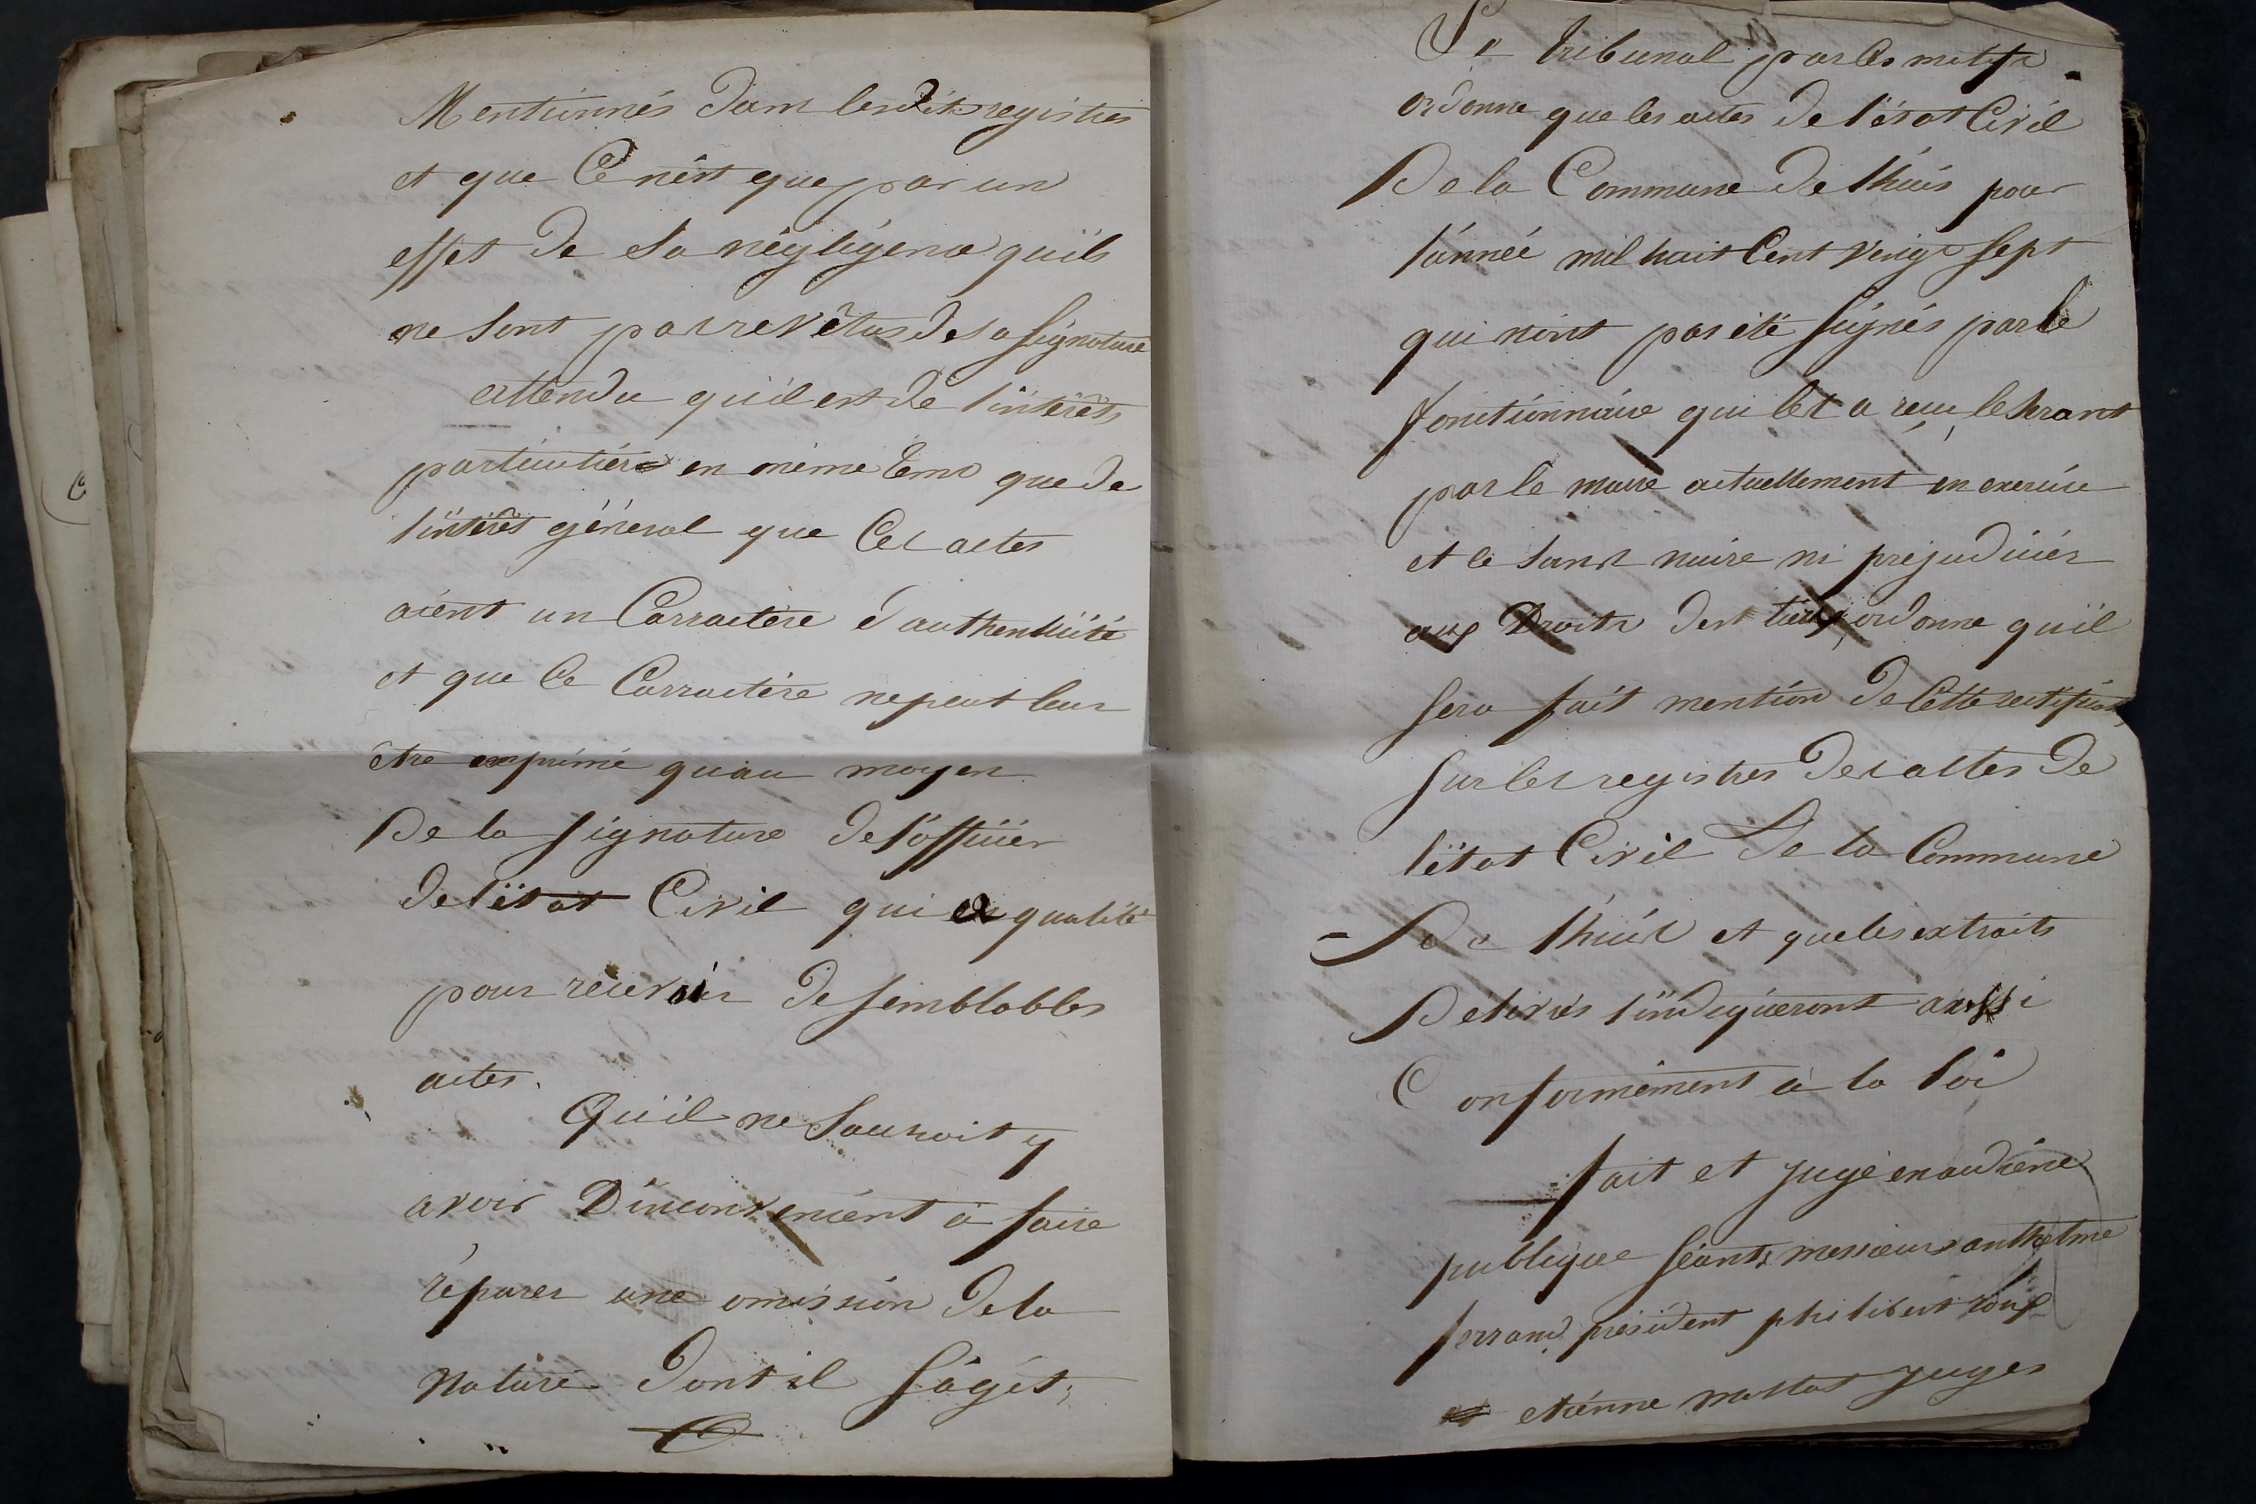 Mentionnés dans lesdits registres
et que Ce nêst que par un
effet de sa négligence quils
ne sont pas revêtus de sa signature
attendu quil est de l'intérêts
particuliére en même tems que de
l'intérêt général que Ces actes
aient un Carractére d'authenticité
et que Ce Carractére ne peut leur
être imprimé quau moyen
De la signature de l'officier
de l'état Civil qui a qualité
pour recevoir de semblables
actes.
Qu'il ne Sauroit y
avoir D'inconvenient à faire
réparer une omission de la
nature dont il s'agit;
Le tribunal par les motifs
ordonne que les actes de l'état Civil
De la Commune de lhuis pour
l'année mil huit Cent vingt sept
qui n'ont pas été signés par le
fonctionnaire qui les a reçu, le seront
par le maire actuellement en exercice
et ce sans nuire ni préjudicier
aux Droits des tiers, ordonne quil
sera fait mention de Cette rectification
sur les registres des actes de
l'état Civil De la Commune
De lhuis et que les extraits
Délivrés l'indiqueront aussi
Conformément à la loi
fait et jugé en audience
publique séants messieurs anthelme
ferrand président philibert roux
et etiénne mollas juges